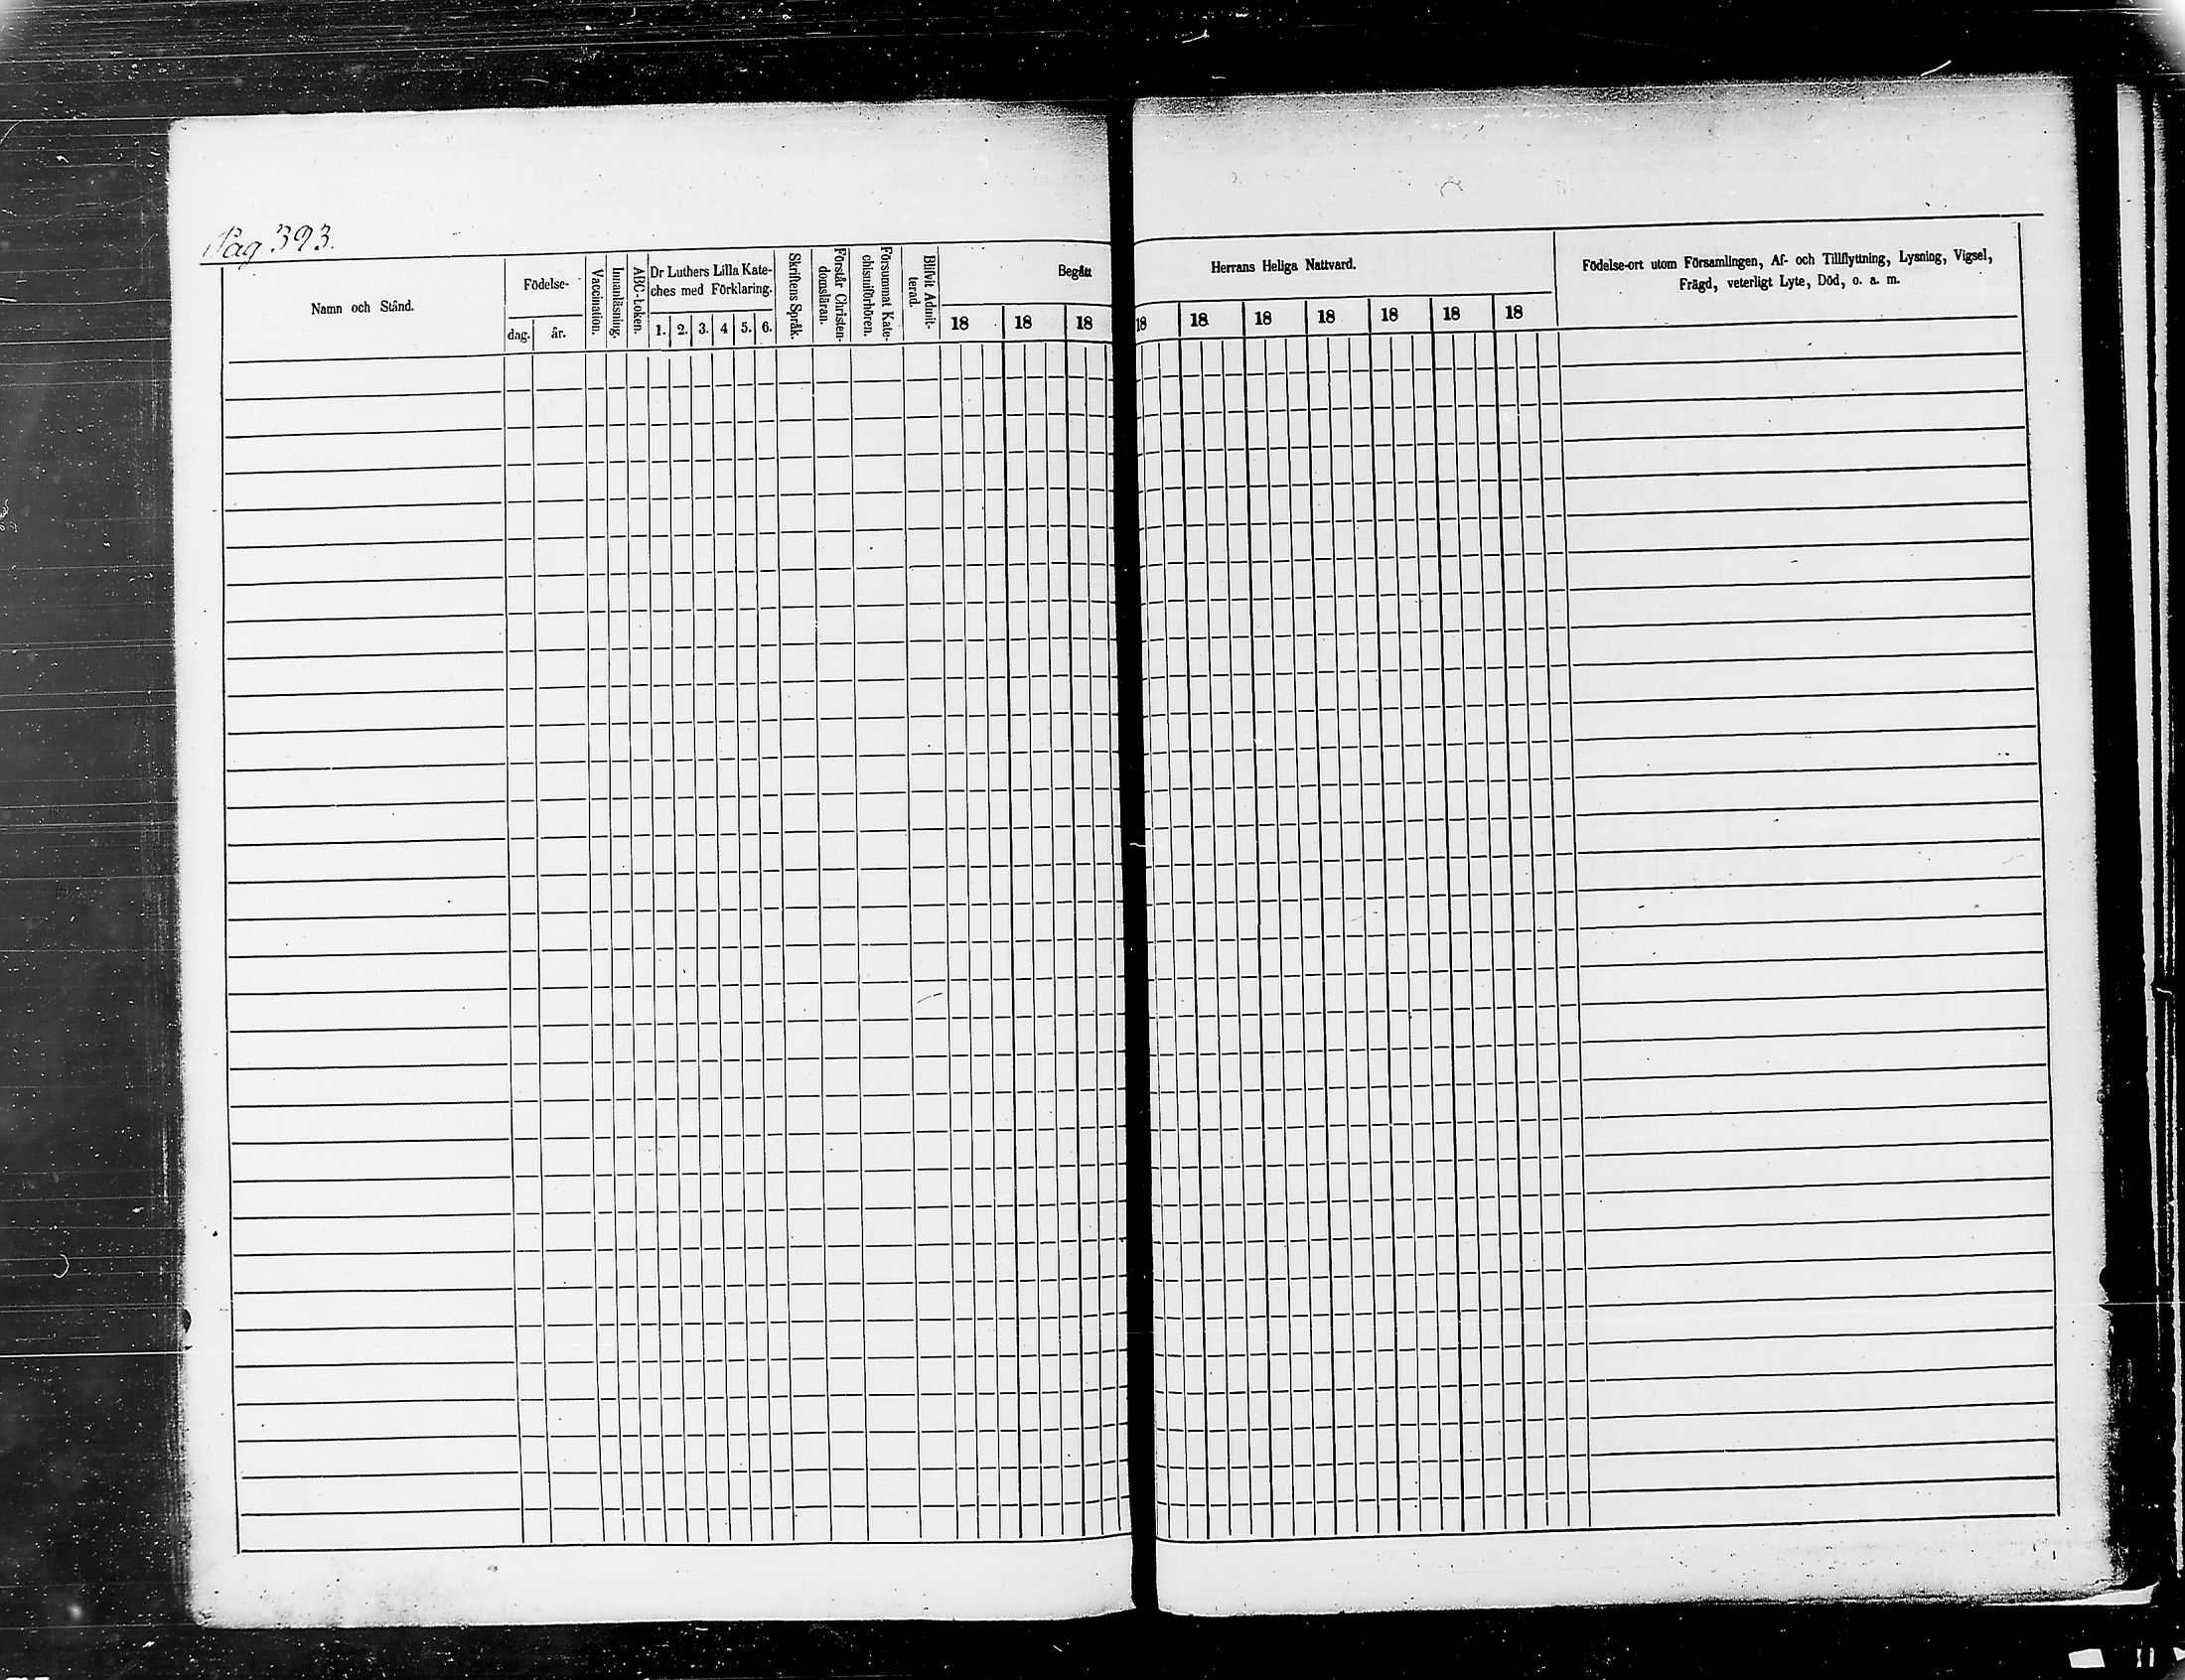 Pag. 393.
Namn och Stånd.
Födelse-
dag.
år.
Vaccination.
Innanläsning.
ABC-boken.
Dr Luthers Lilla Kate-
ches med Förklaring.
1. 2. 3. 4 5. 6.
Skriftens Språk.
Förstår Christen-
domsläran.
Försummat Kate-
chismiförhören.
Blifvit Admit-
terad.
Begått
18 18 18
Herrans Heliga Nattvard.
18 18 18 18 18 18 18
Födelse-ort utom Församlingen, Af- och Tillflyttning, Lysning, Vigsel,
Frägd, veterligt Lyte, Död, o. a. m.